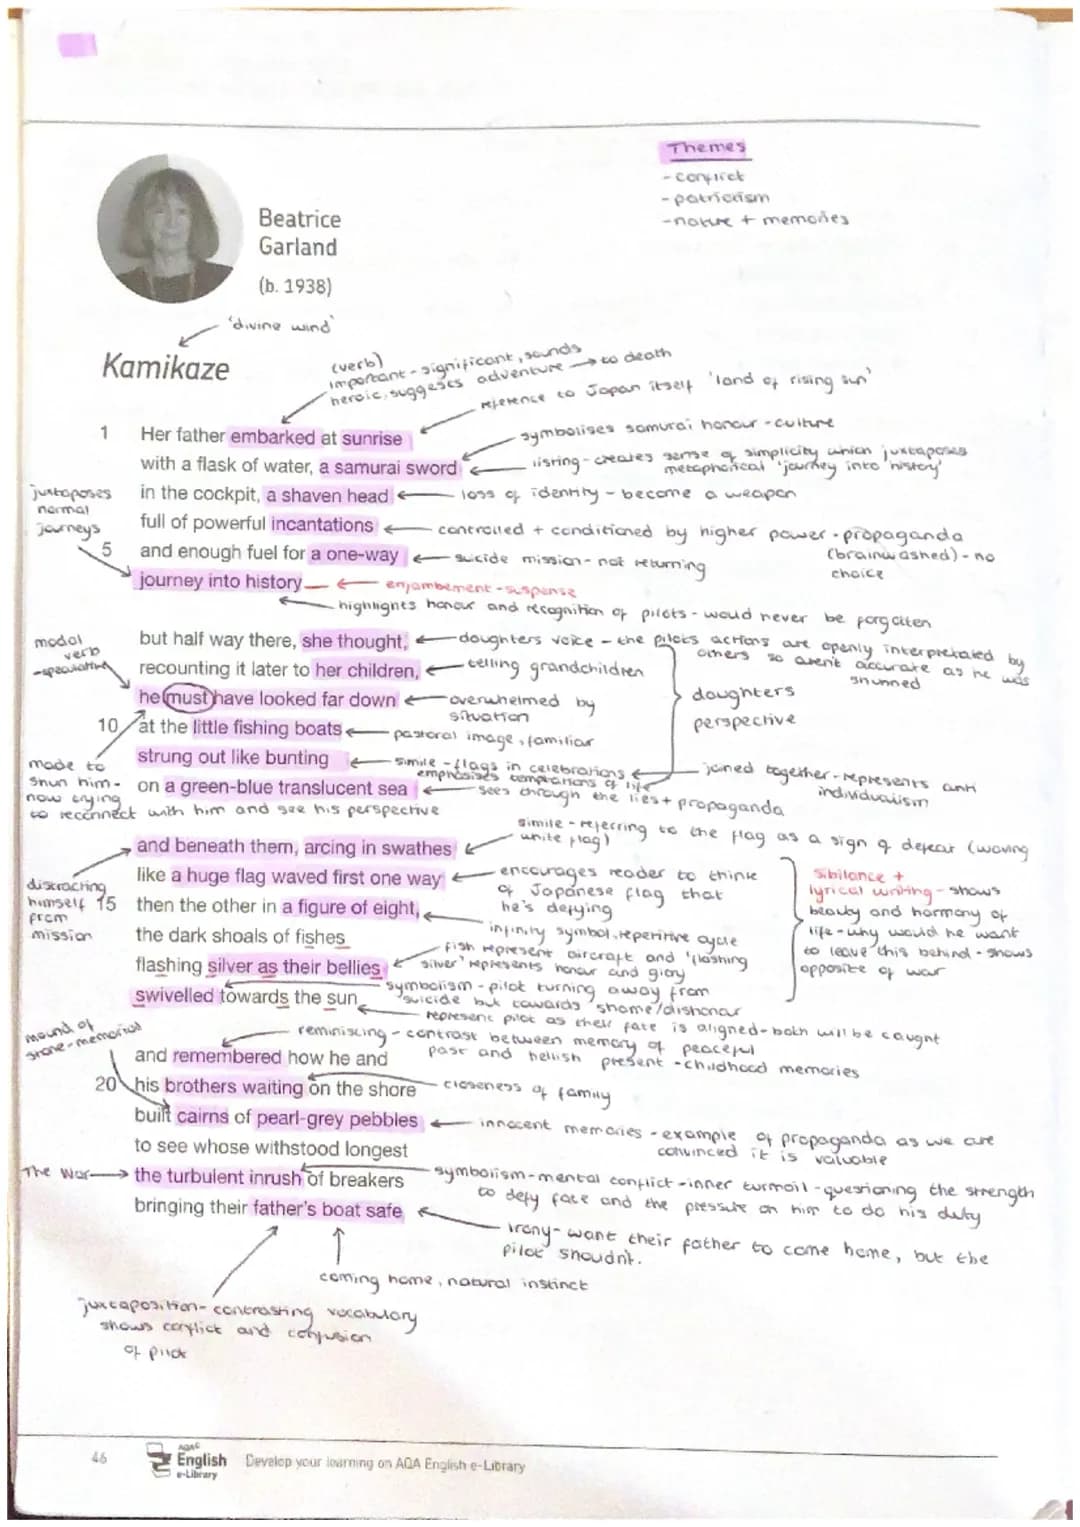 Themes
- conflict
- patriotism
- nature + memories
Beatrice
Garland
(b. 1938)
'divine wind'
Kamikaze
(verb)
important - significant, sounds
heroic, suggests adventure → to death
reference to Japan itself 'land of rising sun'
1 Her father embarked at sunrise
symbolises samurai honour - culture
with a flask of water, a samurai sword
listing - creates sense of simplicity which juxtaposes
metaphorical 'journey into history'
juxtaposes
normal
journeys
in the cockpit, a shaven head
loss of identity - become a weapon
full of powerful incantations
controlled + conditioned by higher power - propaganda
(brainwashed) - no
choice
5 and enough fuel for a one-way
suicide mission - not returning
journey into history
enjambement - suspense
highlights honour and recognition of pilots - would never be forgotten
modal
verb
- speculative
but half way there, she thought,
daughters voice - the pilots actions are openly interpretated by
others so aren't accurate as he was
shunned
recounting it later to her children,
telling grandchildren
he must have looked far down
overwhelmed by
situation
daughters
perspective
10 at the little fishing boats
pastoral image, familiar
strung out like bunting
simile - flags in celebrations
emphasises temptations of life
joined together - represents anti
individualism
made to
shun him -
now trying
to reconnect with him and see his perspective
on a green-blue translucent sea
sees through the lies + propaganda
simile - referring to the flag as a sign of defeat (waving
white flag)
and beneath them, arcing in swathes
like a huge flag waved first one way
encourages reader to think
of Japanese flag that
he's defying
distracting
himself
from
mission
15 then the other in a figure of eight,
infinity symbol, repetitive cycle
the dark shoals of fishes
fish represent aircraft and 'flashing
silver' represents honour and glory
flashing silver as their bellies
symbolism - pilot turning away from
suicide but towards shame/dishonour
swivelled towards the sun
represent pilot as their fate is aligned - both will be caught
sibilance +
lyrical writing - shows
beauty and harmony of
life - why would he want
to leave this behind - shows
opposite of war
mound of
stone - memorial
reminiscing - contrast between memory of peaceful
past and hellish present - childhood memories
and remembered how he and
20 his brothers waiting on the shore
closeness of family
built cairns of pearl-grey pebbles
innocent memories - example of propaganda as we are
convinced it is valuable
to see whose withstood longest
The War → the turbulent inrush of breakers
symbolism - mental conflict - inner turmoil - questioning the strength
to defy fate and the pressure on him to do his duty
bringing their father's boat safe
irony - want their father to come home, but the
pilot shouldn't.
coming home, natural instinct
juxtaposition - contrasting vocabulary
shows conflict and confusion
of pilot
46
AQA
English
e-Library
Develop your learning on AQA English e-Library